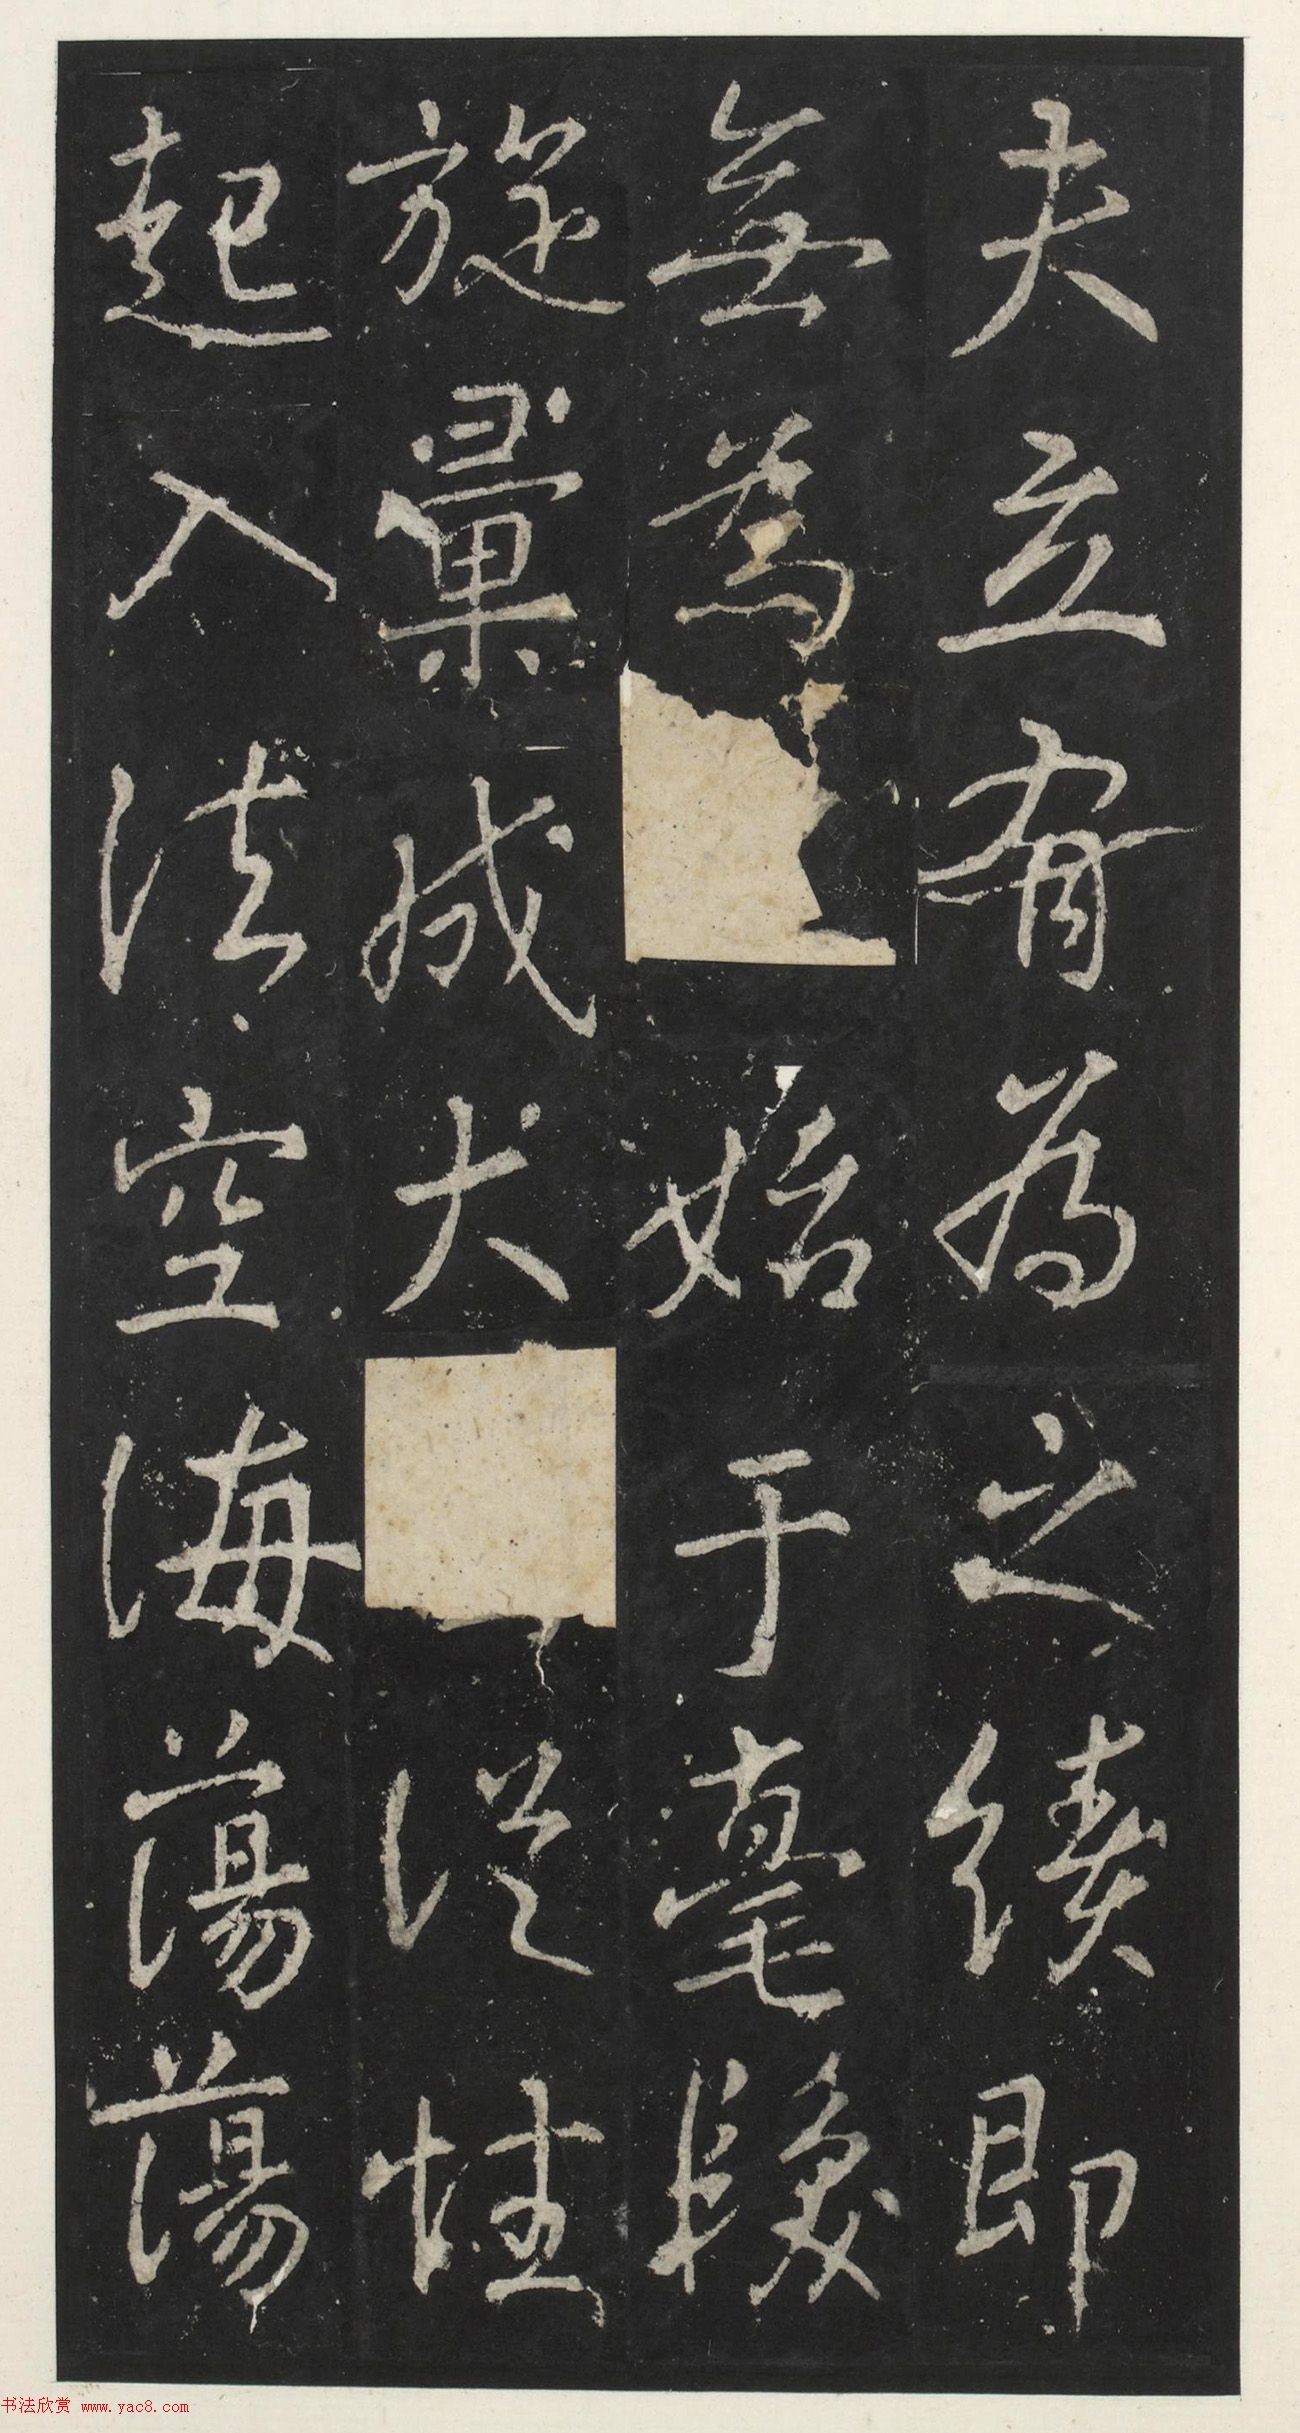 夫立有為之績即
無為始于毫
旋彙成大從性
起入法空海蕩蕩
书法欣赏 www.yac8.com